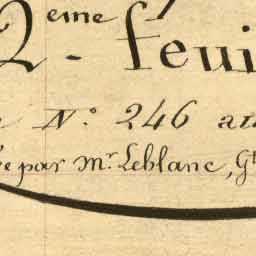 2eme - feui
N° 246 au
par Mr. Leblanc, Gt